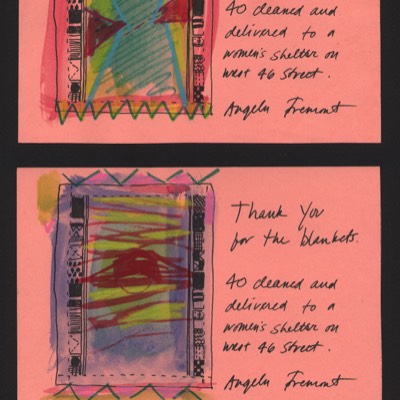 40 cleaned and
delivered to a
women's shelter on
west 46 street.
Angela Fremont
Thank you
for the blankets.
40 cleaned and
delivered to a
women's shelter on
west 46 street.
Angela Fremont